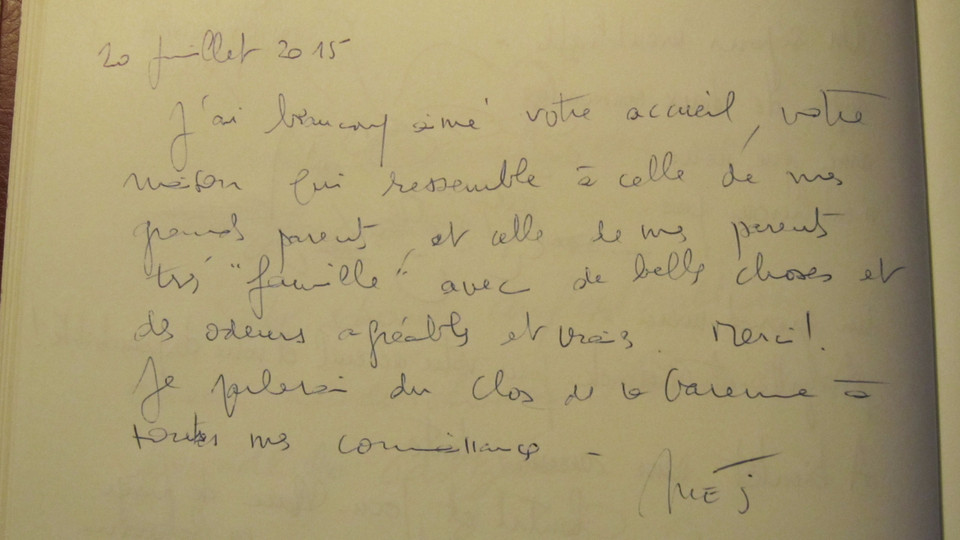 20 juillet 2015
J'ai beaucoup aimé votre accueil, votre
maison qui ressemble à celle de mes
grands parents, et celle de mes parents
très "famille" avec de belles choses et
des odeurs agréables et vraies. Merci!
Je parlerai du Clos de la Garenne à
toutes mes connaissances